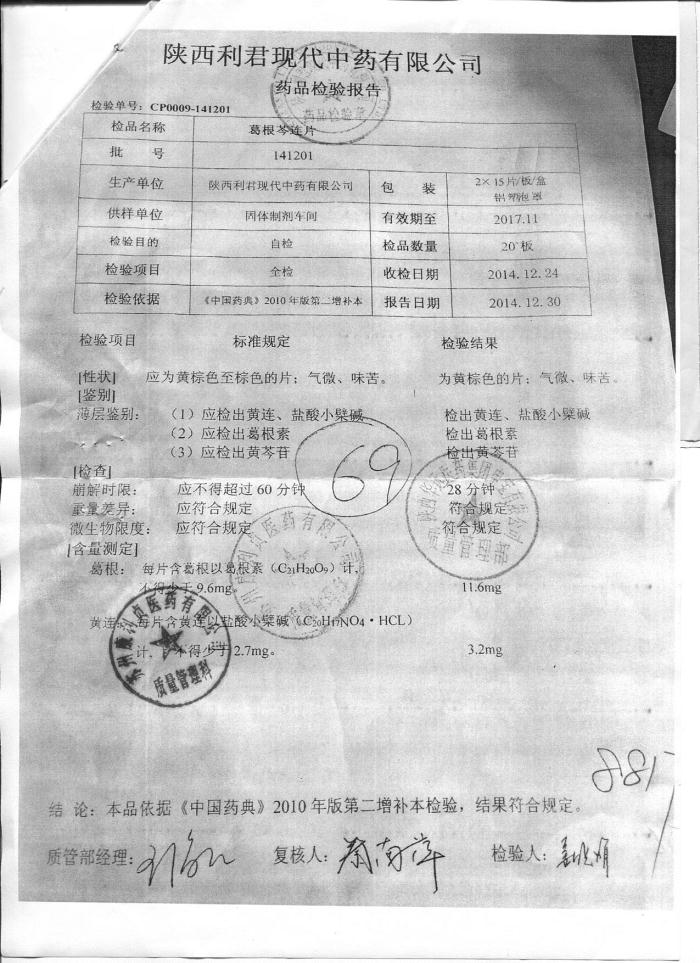 陕西利君现代中药有限公司
药品检验报告
检验单号：CP0009-141201
检品名称 葛根芩连片
批 号 141201
生产单位 陕西利君现代中药有限公司 包 装 2×15片/板/盒
铝塑泡罩
供样单位 固体制剂车间 有效期至 2017.11
检验目的 自检 检品数量 20板
检验项目 全检 收检日期 2014.12.24
检验依据 《中国药典》2010年版第二增补本 报告日期 2014.12.30
检验项目 标准规定 检验结果
[性状] 应为黄棕色至棕色的片；气微、味苦。 为黄棕色的片；气微、味苦。
[鉴别]
薄层鉴别： （1）应检出黄连、盐酸小檗碱 检出黄连、盐酸小檗碱
（2）应检出葛根素 检出葛根素
（3）应检出黄芩苷 检出黄芩苷
69
[检查]
崩解时限： 应不得超过60分钟 28分钟
重量差异： 应符合规定 符合规定
微生物限度： 应符合规定 符合规定
[含量测定]
葛根： 每片含葛根以葛根素（C21H20O9）计，
不得少于9.6mg。 11.6mg
黄连： 每片含黄连以盐酸小檗碱（C20H17NO4·HCL）
计，不得少于2.7mg。 3.2mg
质量管理科
885
结 论：本品依据《中国药典》2010年版第二增补本检验，结果符合规定。
质管部经理： 复核人： 检验人：